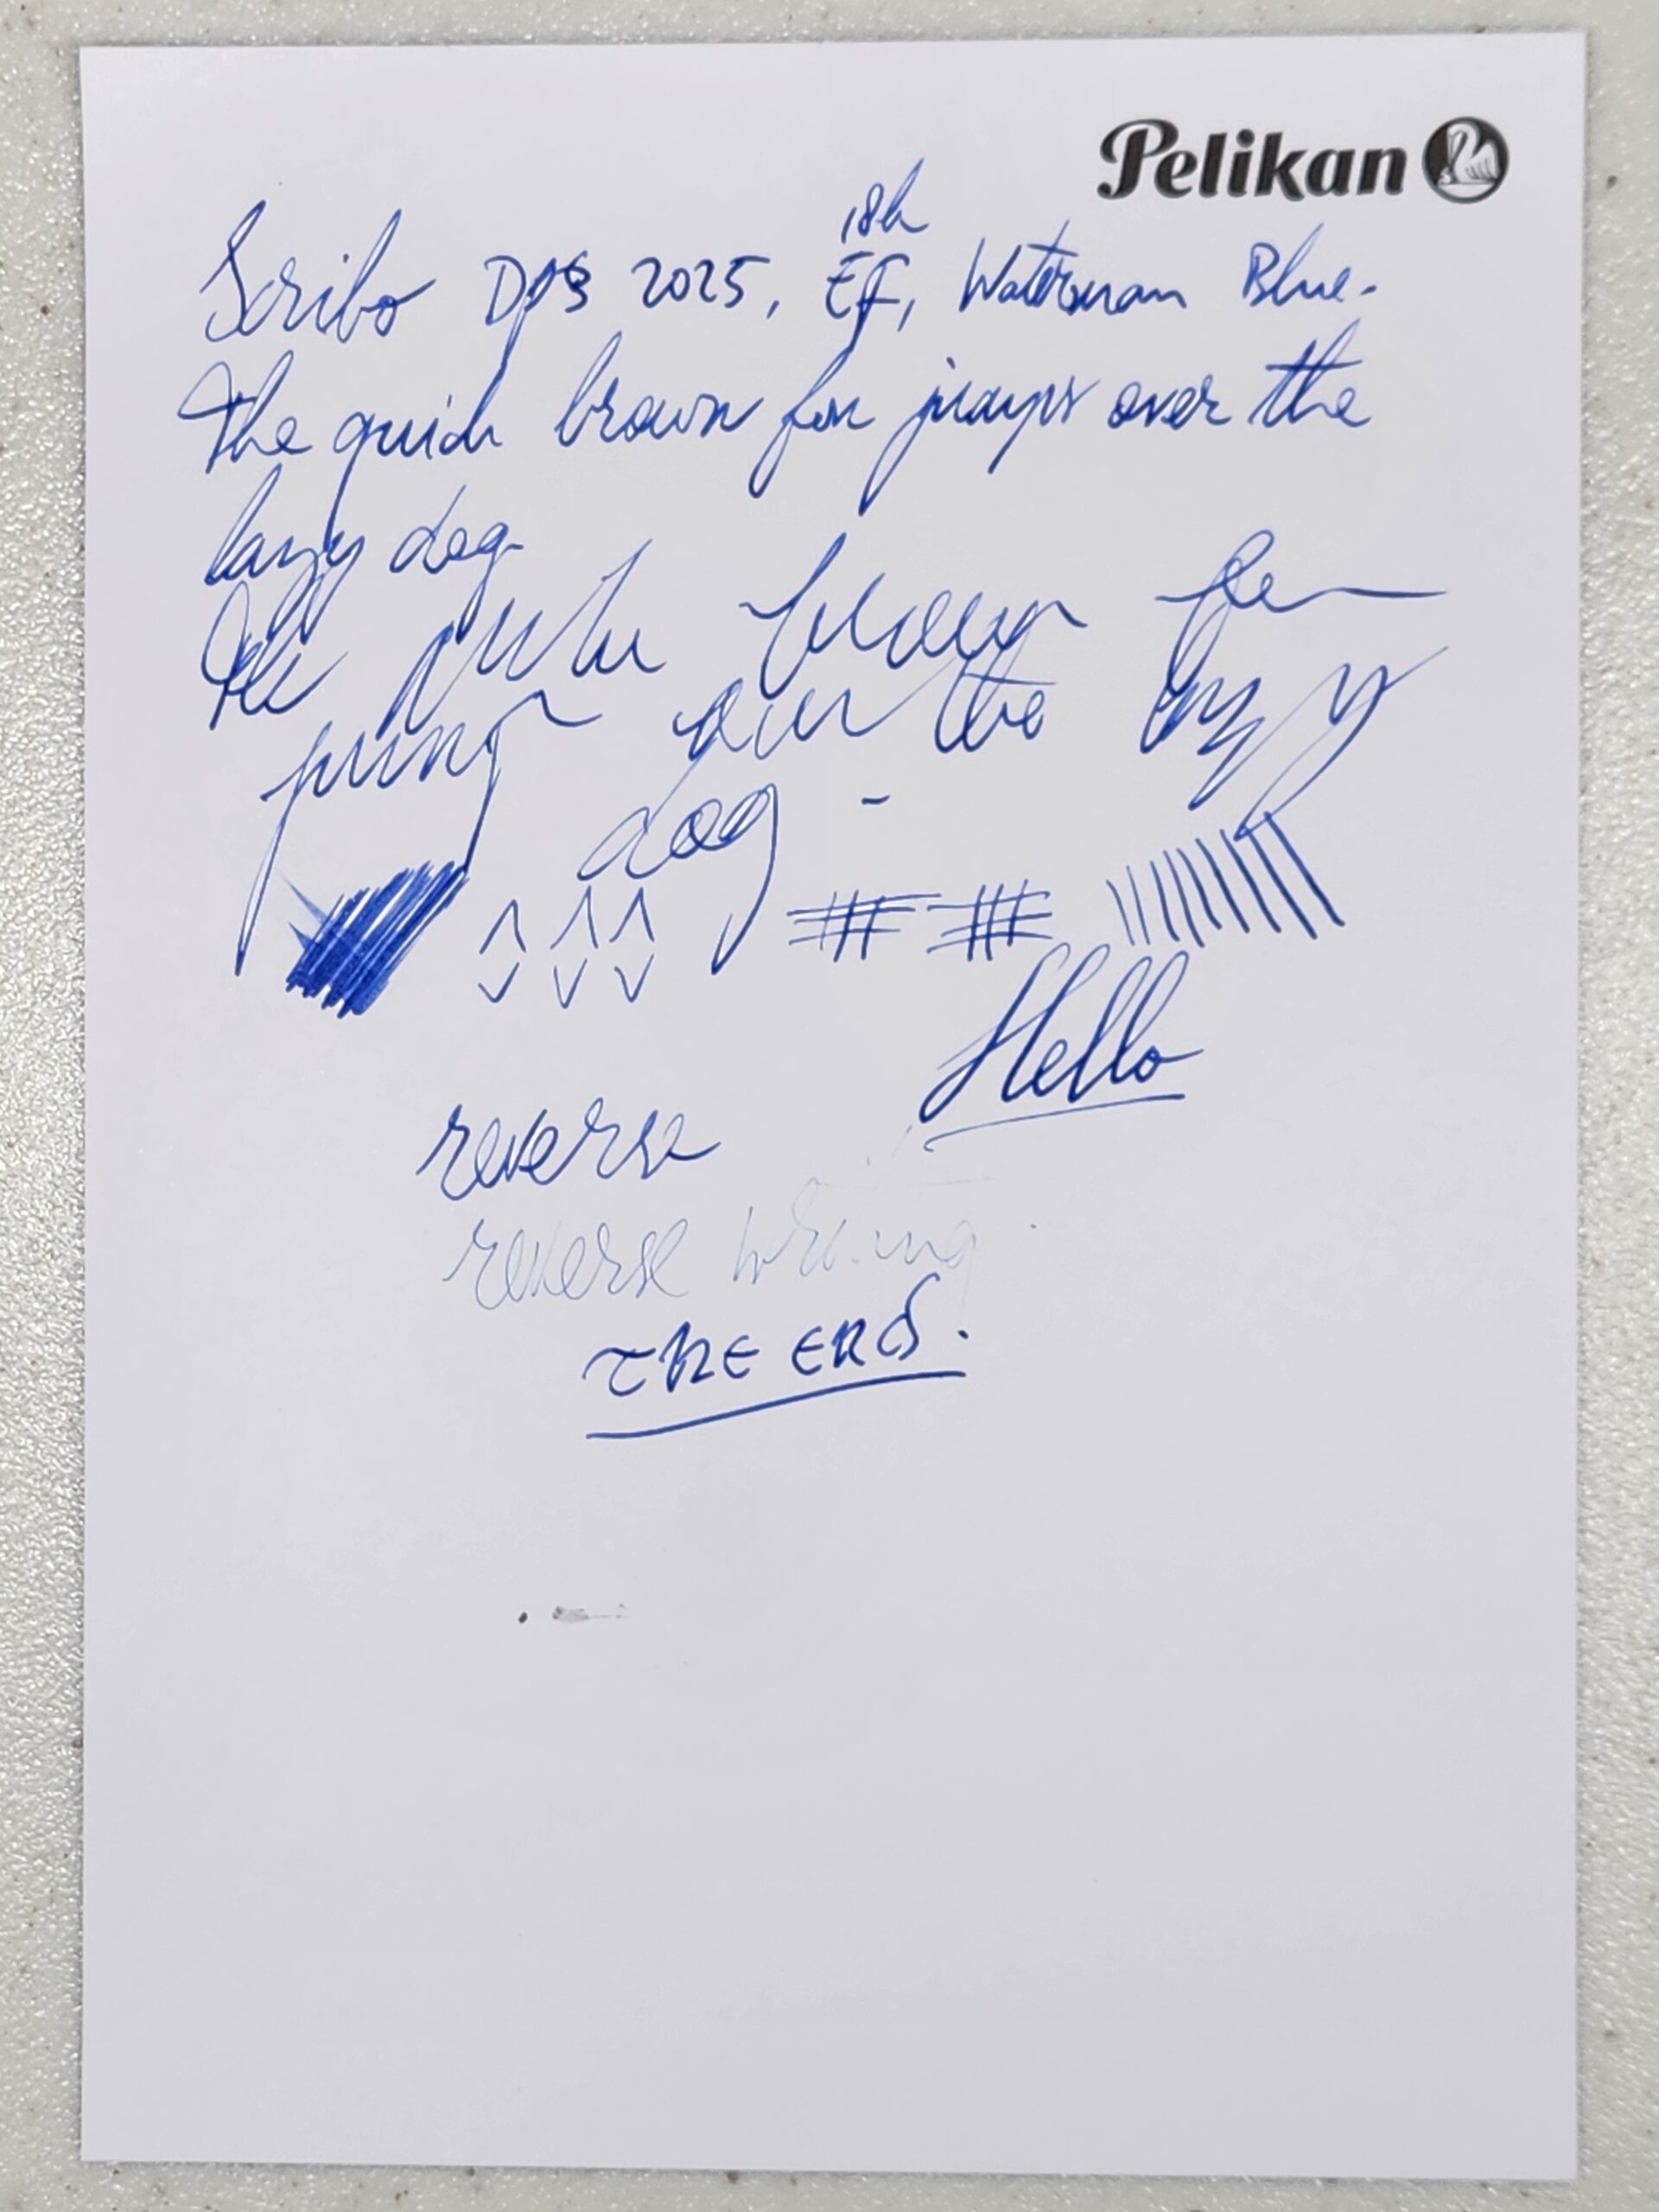 Pelikan
18k
Scribo DPS 2025, EF, Waterman Blue.
The quick brown fox jumps over the
lazy dog.
The quick brown fox
jumps over the lazy
dog -
Hello
reverse
reverse writing.
THE END.